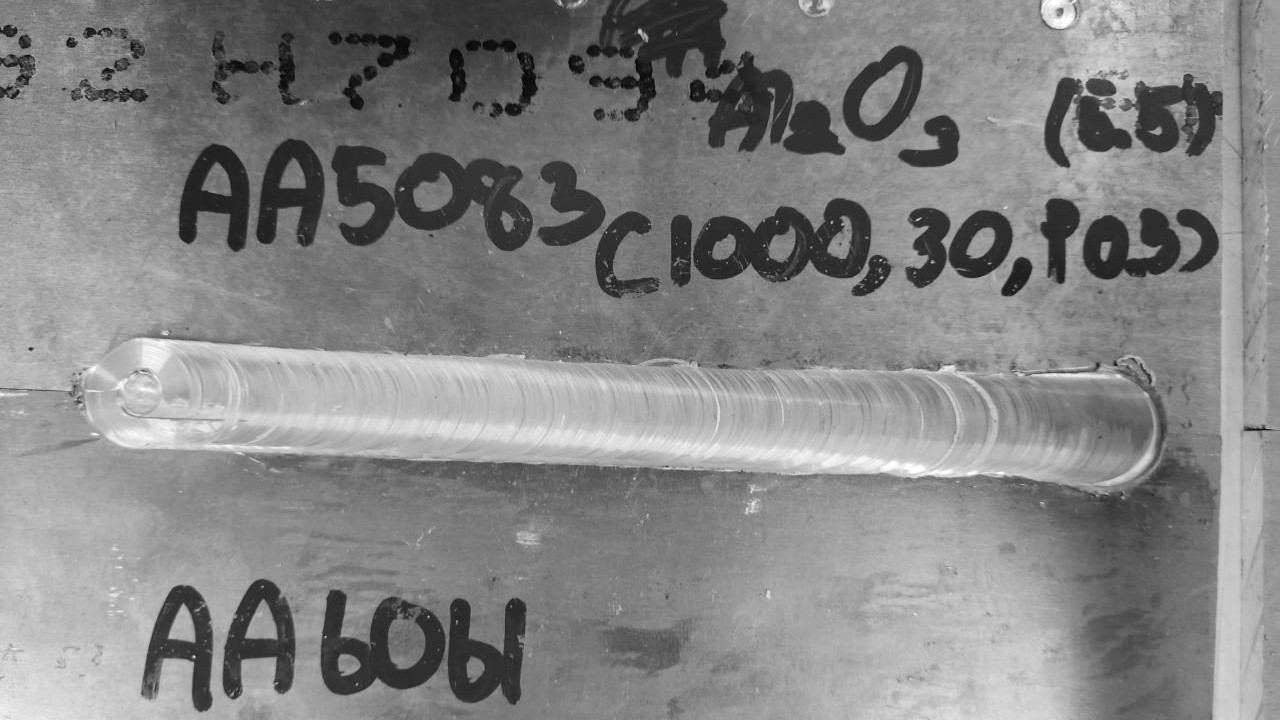 92 H7095
Al₂O₃
AA5083
(1000, 30, P03)
AA6061